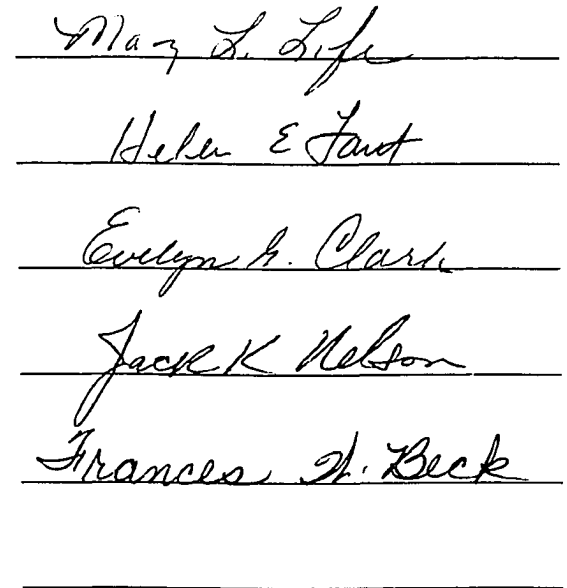 Mary L. Life
Helen E Fant
Evelyn G. Clark
Jack K Nelson
Frances H. Beck